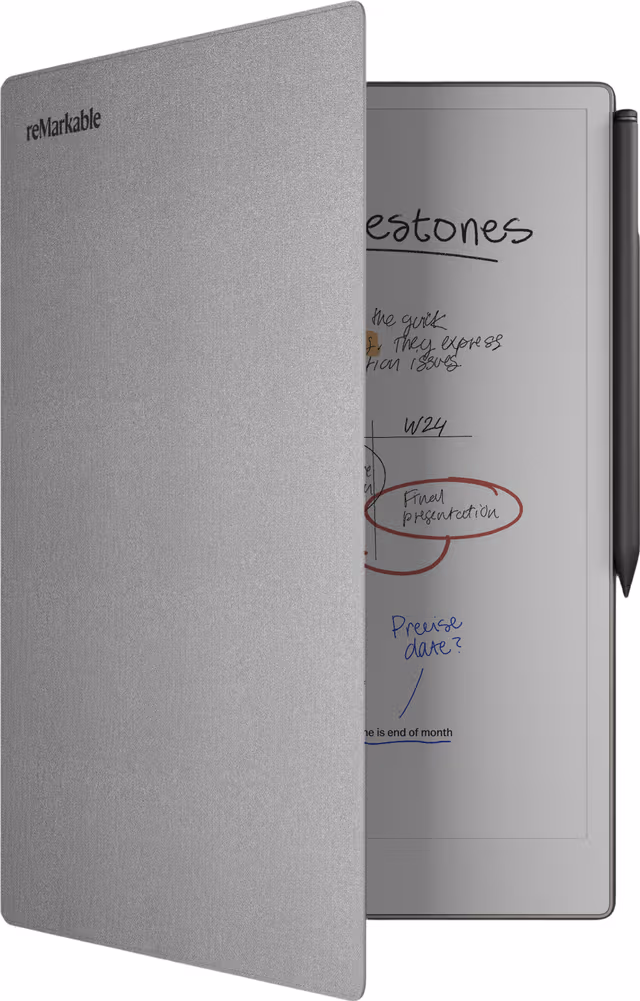 reMarkable
estones
the quick
s, They express
tion issues
W24
re
Final
presentation
Precise
date?
ne is end of month